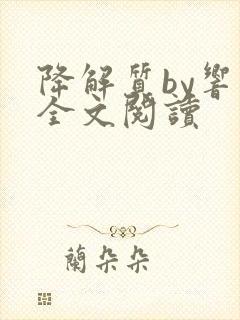 降解質by響
全文閱讀
蘭朵朵